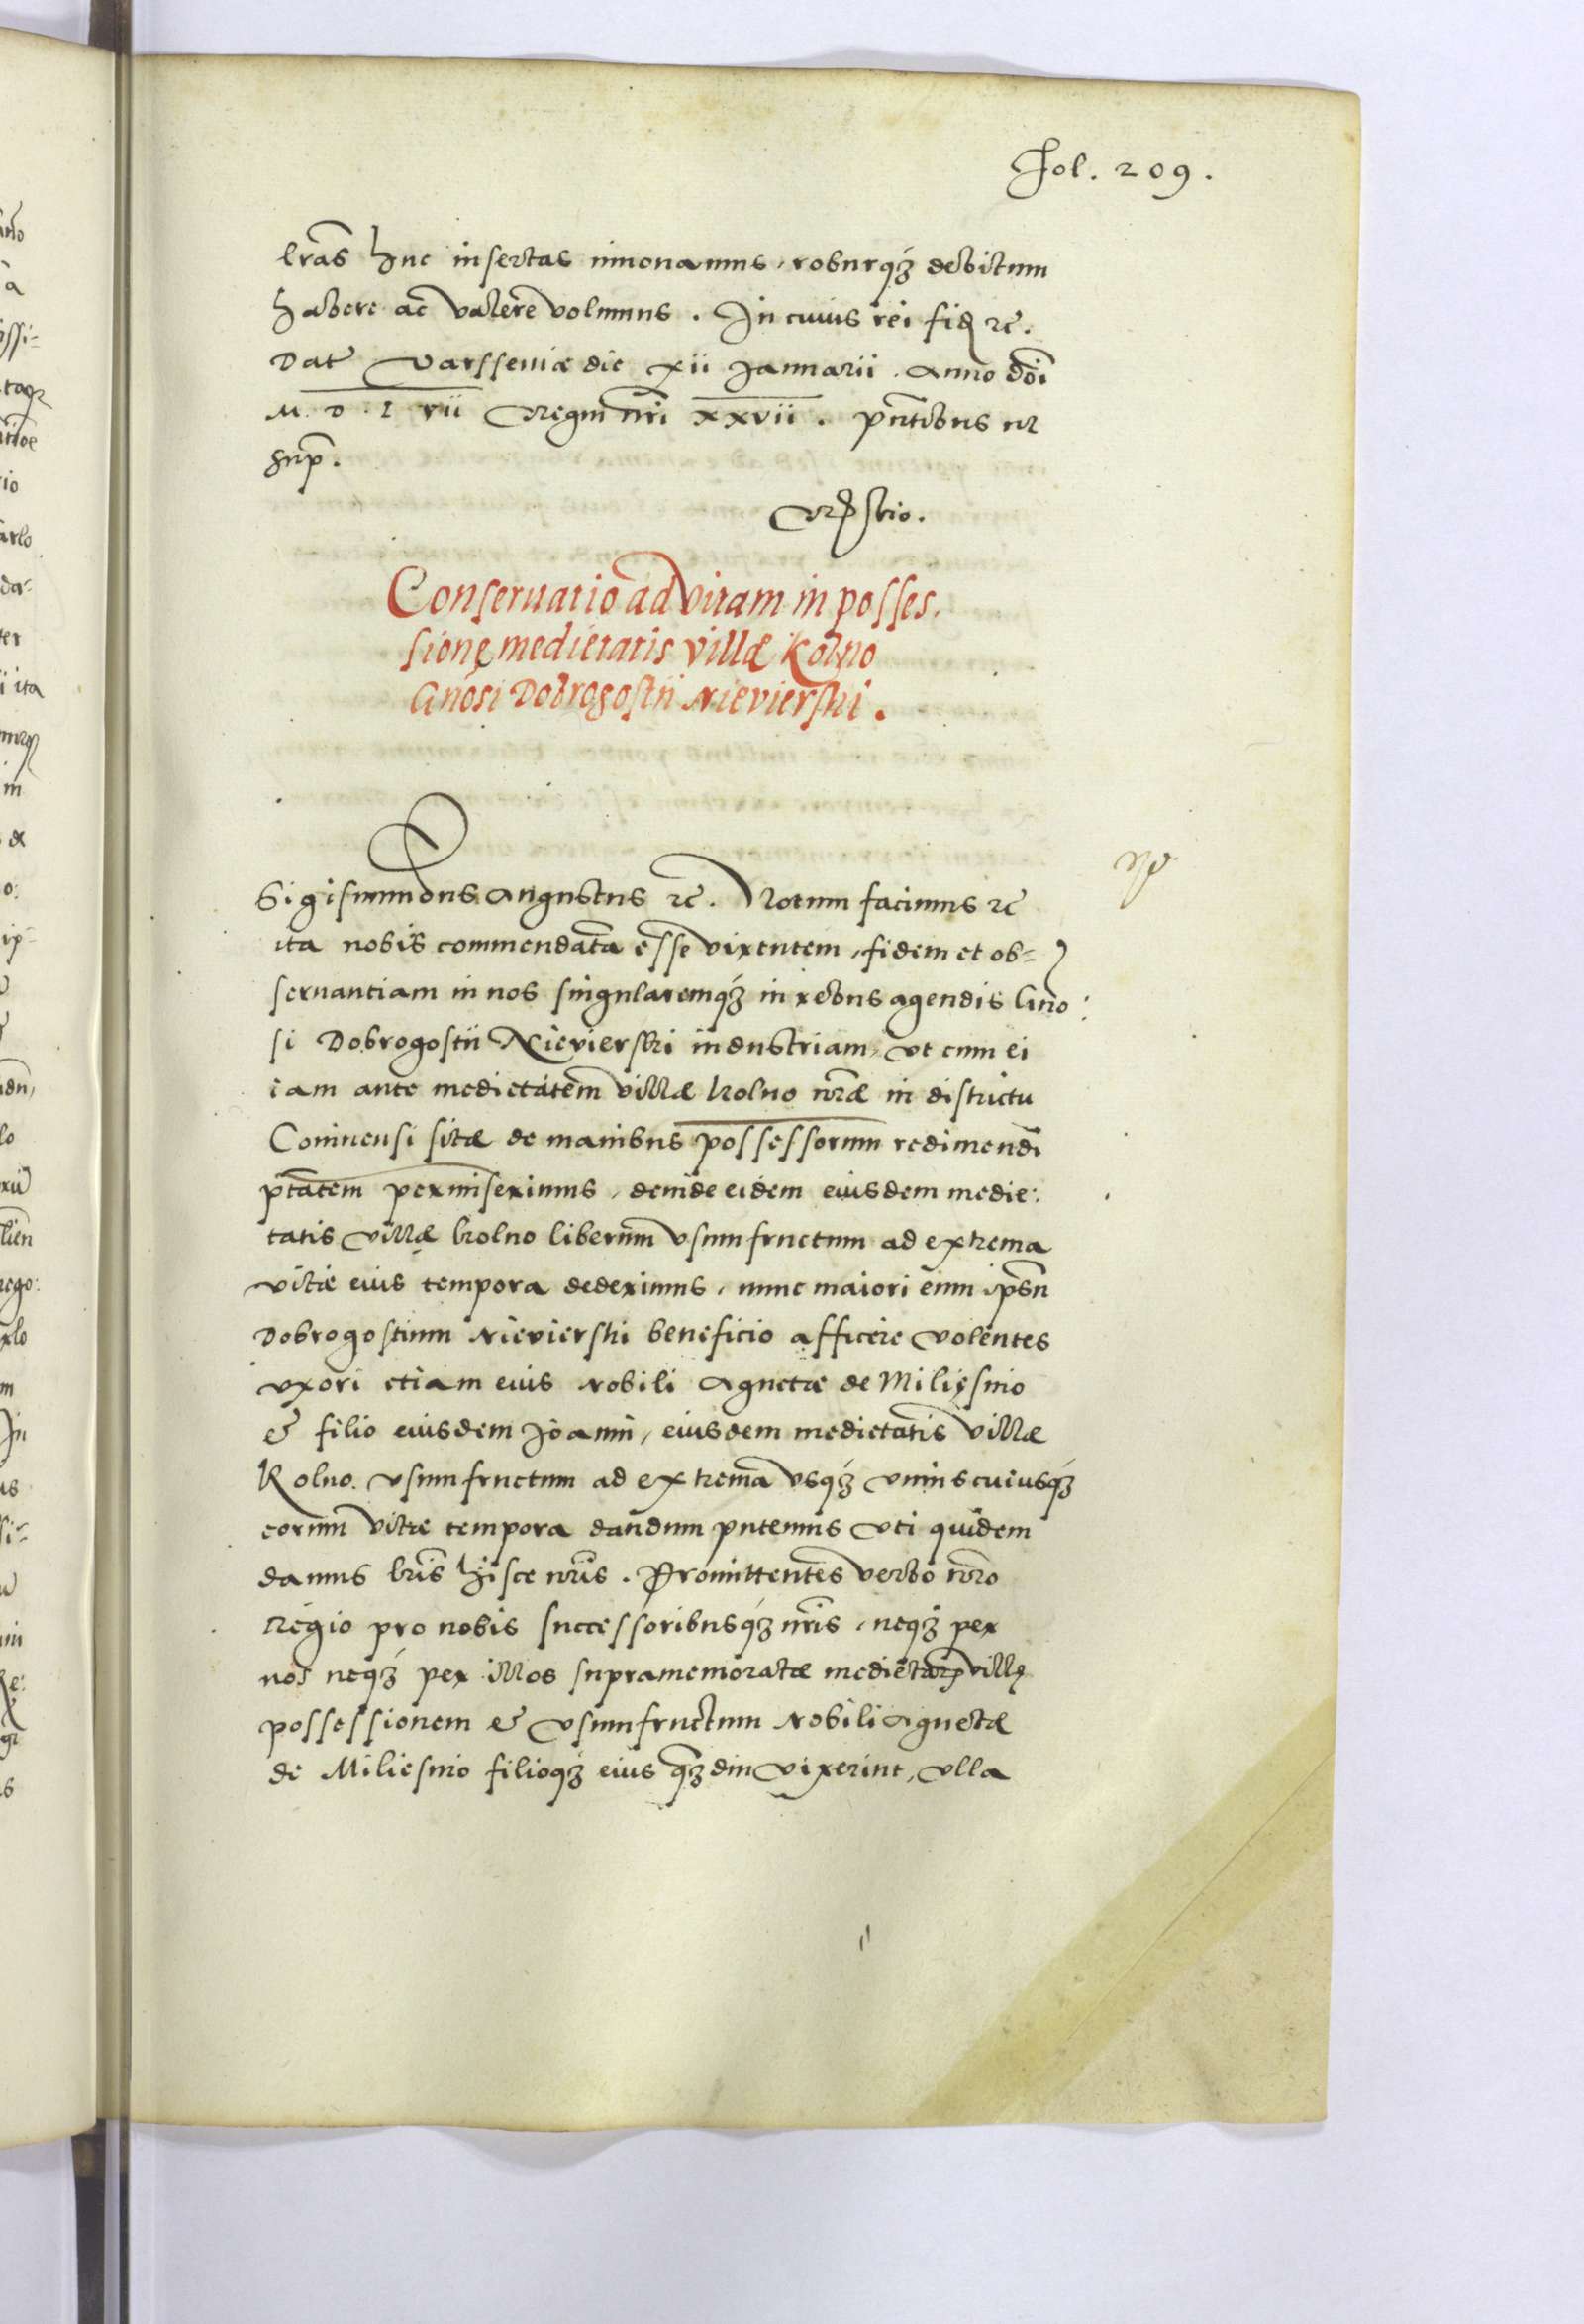 Fol. 209.
lras huc insertas innouamus, roburq3 debitum
habere ac valere volumus. In cuius rei fid rc.
Dat Varsseuiæ die xii Januarii. Anno doi
M. D. L vii Regni nri xxvii. pntibus ut
sup.
Conseruatio ad vitam in posses.
sionę medietatis villæ Kolno
Gnosi Dobrogostii Nievierski.
Sigismundus Augustus rc. Notum facimus rc
ita nobis commendata esse virtutem, fidem et ob-
seruantiam in nos singularemq3 in rebus agendis Gno:
si Dobrogostii Nievierski industriam, vt cum ei
iam ante medietatem villæ Kolno nræ in districtu
Coninensi sitæ de manibus possessorum redimendi
ptatem permiserimus, deinde eidem eiusdem medie:
tatis villæ Kolno liberum vsumfructum ad extrema
vitæ eius tempora dederimus, nunc maiori eum ipsn
Dobrogostium Nievierski beneficio afficere volentes
vxori etiam eius Nobili Agnetæ de Milięsno
& filio eiusdem Joanni, eiusdem medietatis villæ
Kolno. vsumfructum ad extrema vsq3 vniuscuiusq3
eorum vitæ tempora dandum putemus vti quidem
damus lris hisce nris. Promittentes verbo nro
Regio pro nobis successoribusq3 nris, neq3 per
nos neq3 per illos supramemoratæ medietatis villę
possessionem & vsumfructum Nobili Agnetæ
de Miliesno filioq3 eius q3diu vixerint, vlla